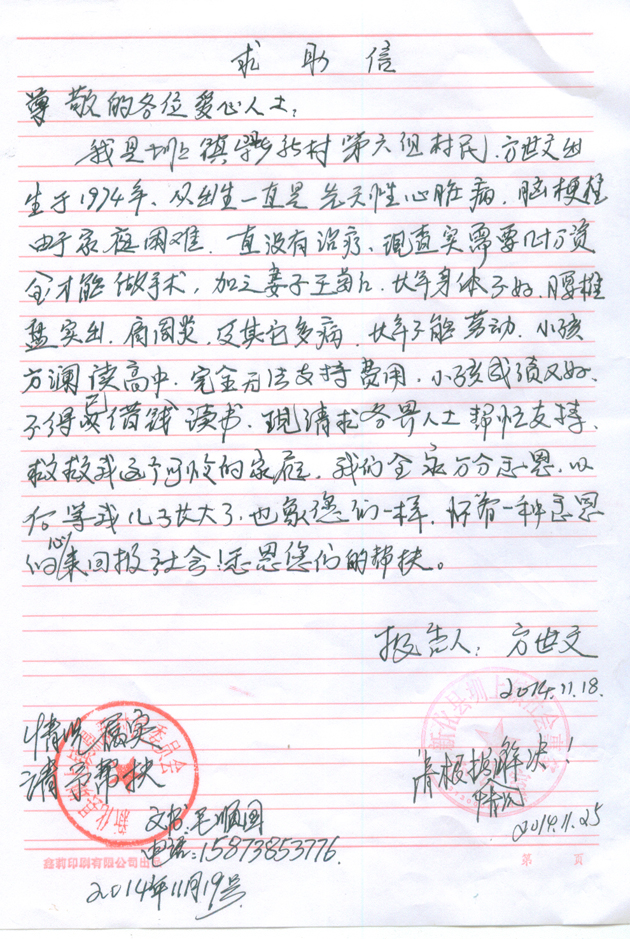 求助信
尊敬的各位爱心人士：
我是圳上镇 新村第六组村民.方世文出
生于1974年、从出生一直是先天性心脏病.脑梗栓
由于家庭困难.一直没有治疗、现查实需要几十万资
金才能做手术，加之妻子王菊 .长年身体不好.腰椎
盘突出.肩周炎.及其它多病.长年不能劳动.小孩
方澜读高中.完全无法支持费用.小孩成绩又好.
不得已借钱读书.现请求各界人士帮忙支持.
救救我这个可怜的家庭.我们全家万分感恩.以
后等我儿子长大了.也象您们一样.怀有一种感恩
的心来回报社会!感恩您们的帮扶。
报告人：方世文
2014.11.18.
情况属实
请予帮扶
文书:毛顺国
电话:15873853776.
2014年11月19号
请 解决!
情况
2014.11.25
新化县圳上镇
委员会
鑫莉印刷有限公司出品
第 页